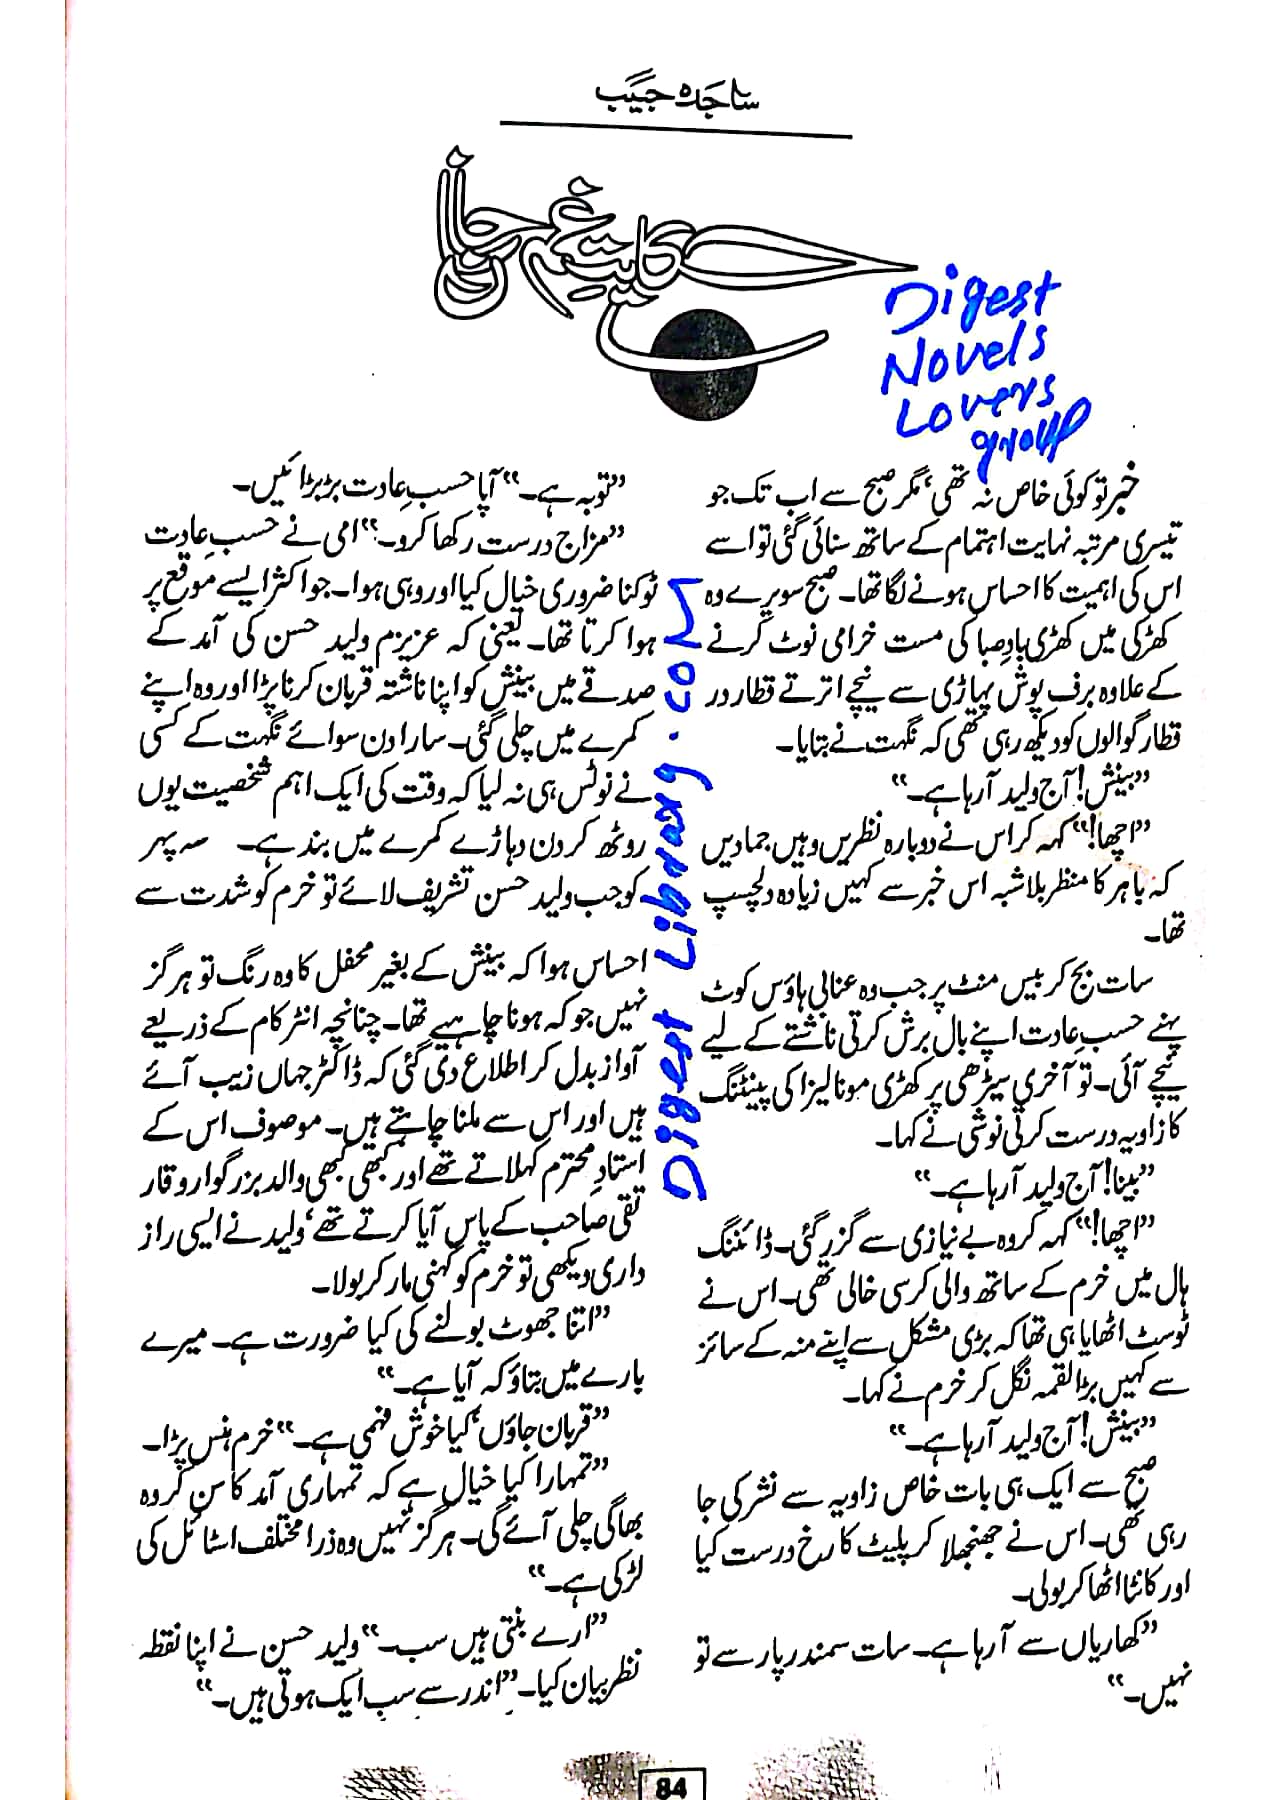 ساجدہ حبیب
حکایتِ غمِ جاناں
Digest
Novels
Lovers
group
خبر تو کوئی خاص نہ تھی، مگر صبح سے اب تک جو
تیسری مرتبہ نہایت اہتمام کے ساتھ سنائی گئی تو اسے
اس کی اہمیت کا احساس ہونے لگا تھا۔ صبح سویرے وہ
کھڑکی میں کھڑی بادِ صبا کی مست خرامی نوٹ کرنے
کے علاوہ برف پوش پہاڑی سے نیچے اترتے قطار در
قطار گوالوں کو دیکھ رہی تھی کہ نگہت نے بتایا۔
”بینش! آج ولید آ رہا ہے۔“
”اچھا!“ کہہ کر اس نے دوبارہ نظریں وہیں جما دیں
کہ باہر کا منظر بلاشبہ اس خبر سے کہیں زیادہ دلچسپ
تھا۔
سات بج کر بیس منٹ پر جب وہ عنابی ہاؤس کوٹ
پہنے حسبِ عادت اپنے بال برش کرتی ناشتے کے لیے
نیچے آئی۔ تو آخری سیڑھی پر کھڑی مونا لیزا کی پینٹنگ
کا زاویہ درست کرتی نوشی نے کہا۔
”بینا! آج ولید آ رہا ہے۔“
”اچھا!“ کہہ کر وہ بے نیازی سے گزر گئی۔ ڈائننگ
ہال میں خرم کے ساتھ والی کرسی خالی تھی۔ اس نے
ٹوسٹ اٹھایا ہی تھا کہ بڑی مشکل سے اپنے منہ کے سائز
سے کہیں بڑا لقمہ نگل کر خرم نے کہا۔
”بینش! آج ولید آ رہا ہے۔“
صبح سے ایک ہی بات خاص زاویہ سے نشر کی جا
رہی تھی۔ اس نے جھنجھلا کر پلیٹ کا رخ درست کیا
اور کانٹا اٹھا کر بولی۔
”کھاریاں سے آ رہا ہے۔ سات سمندر پار سے تو
نہیں۔“
Digest Library.com
”توبہ ہے۔“ آپا حسبِ عادت بڑبڑائیں۔
”مزاج درست رکھا کرو۔“ امی نے حسبِ عادت
ٹوکنا ضروری خیال کیا اور وہی ہوا۔ جو اکثر ایسے موقع پر
ہوا کرتا تھا۔ یعنی کہ عزیزم ولید حسن کی آمد کے
صدقے میں بینش کو اپنا ناشتہ قربان کرنا پڑا اور وہ اپنے
کمرے میں چلی گئی۔ سارا دن سوائے نگہت کے کسی
نے نوٹس ہی نہ لیا کہ وقت کی ایک اہم شخصیت یوں
روٹھ کر دن دہاڑے کمرے میں بند ہے۔ سہ پہر
کو جب ولید حسن تشریف لائے تو خرم کو شدت سے
احساس ہوا کہ بینش کے بغیر محفل کا وہ رنگ تو ہرگز
نہیں جو کہ ہونا چاہیے تھا۔ چنانچہ انٹر کام کے ذریعے
آواز بدل کر اطلاع دی گئی کہ ڈاکٹر جہاں زیب آئے
ہیں اور اس سے ملنا چاہتے ہیں۔ موصوف اس کے
استادِ محترم کہلاتے تھے اور کبھی کبھی والد بزرگوار وقار
تقی صاحب کے پاس آیا کرتے تھے، ولید نے ایسی راز
داری دیکھی تو خرم کو کہنی مار کر بولا۔
”اتنا جھوٹ بولنے کی کیا ضرورت ہے۔ میرے
بارے میں بتاؤ کہ آیا ہے۔“
”قربان جاؤں، کیا خوش فہمی ہے۔“ خرم ہنس پڑا۔
”تمہارا کیا خیال ہے کہ تمہاری آمد کا سن کر وہ
بھاگی چلی آئے گی۔ ہرگز نہیں وہ ذرا مختلف اسٹائل کی
لڑکی ہے۔“
”ارے بنتی ہیں سب۔“ ولید حسن نے اپنا نقطہ
نظر بیان کیا۔ ”اندر سے سب ایک ہوتی ہیں۔“
84